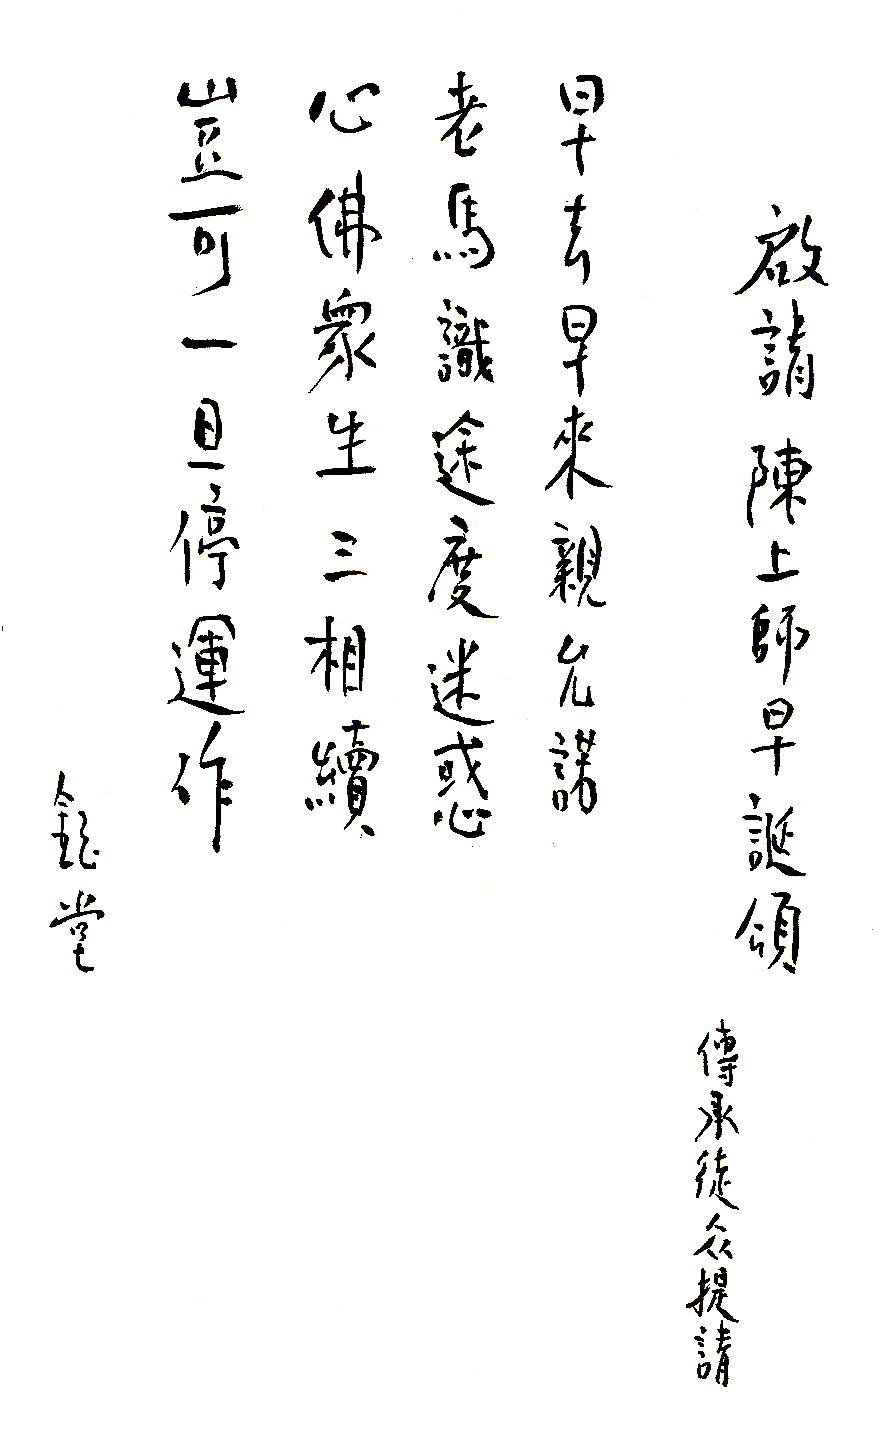 啟請 陳上師早早誕頌
傳承徒眾提請
早去早來親允諾
老馬識途度迷惑
心佛眾生三相續
豈可一旦停運作
鈺堂